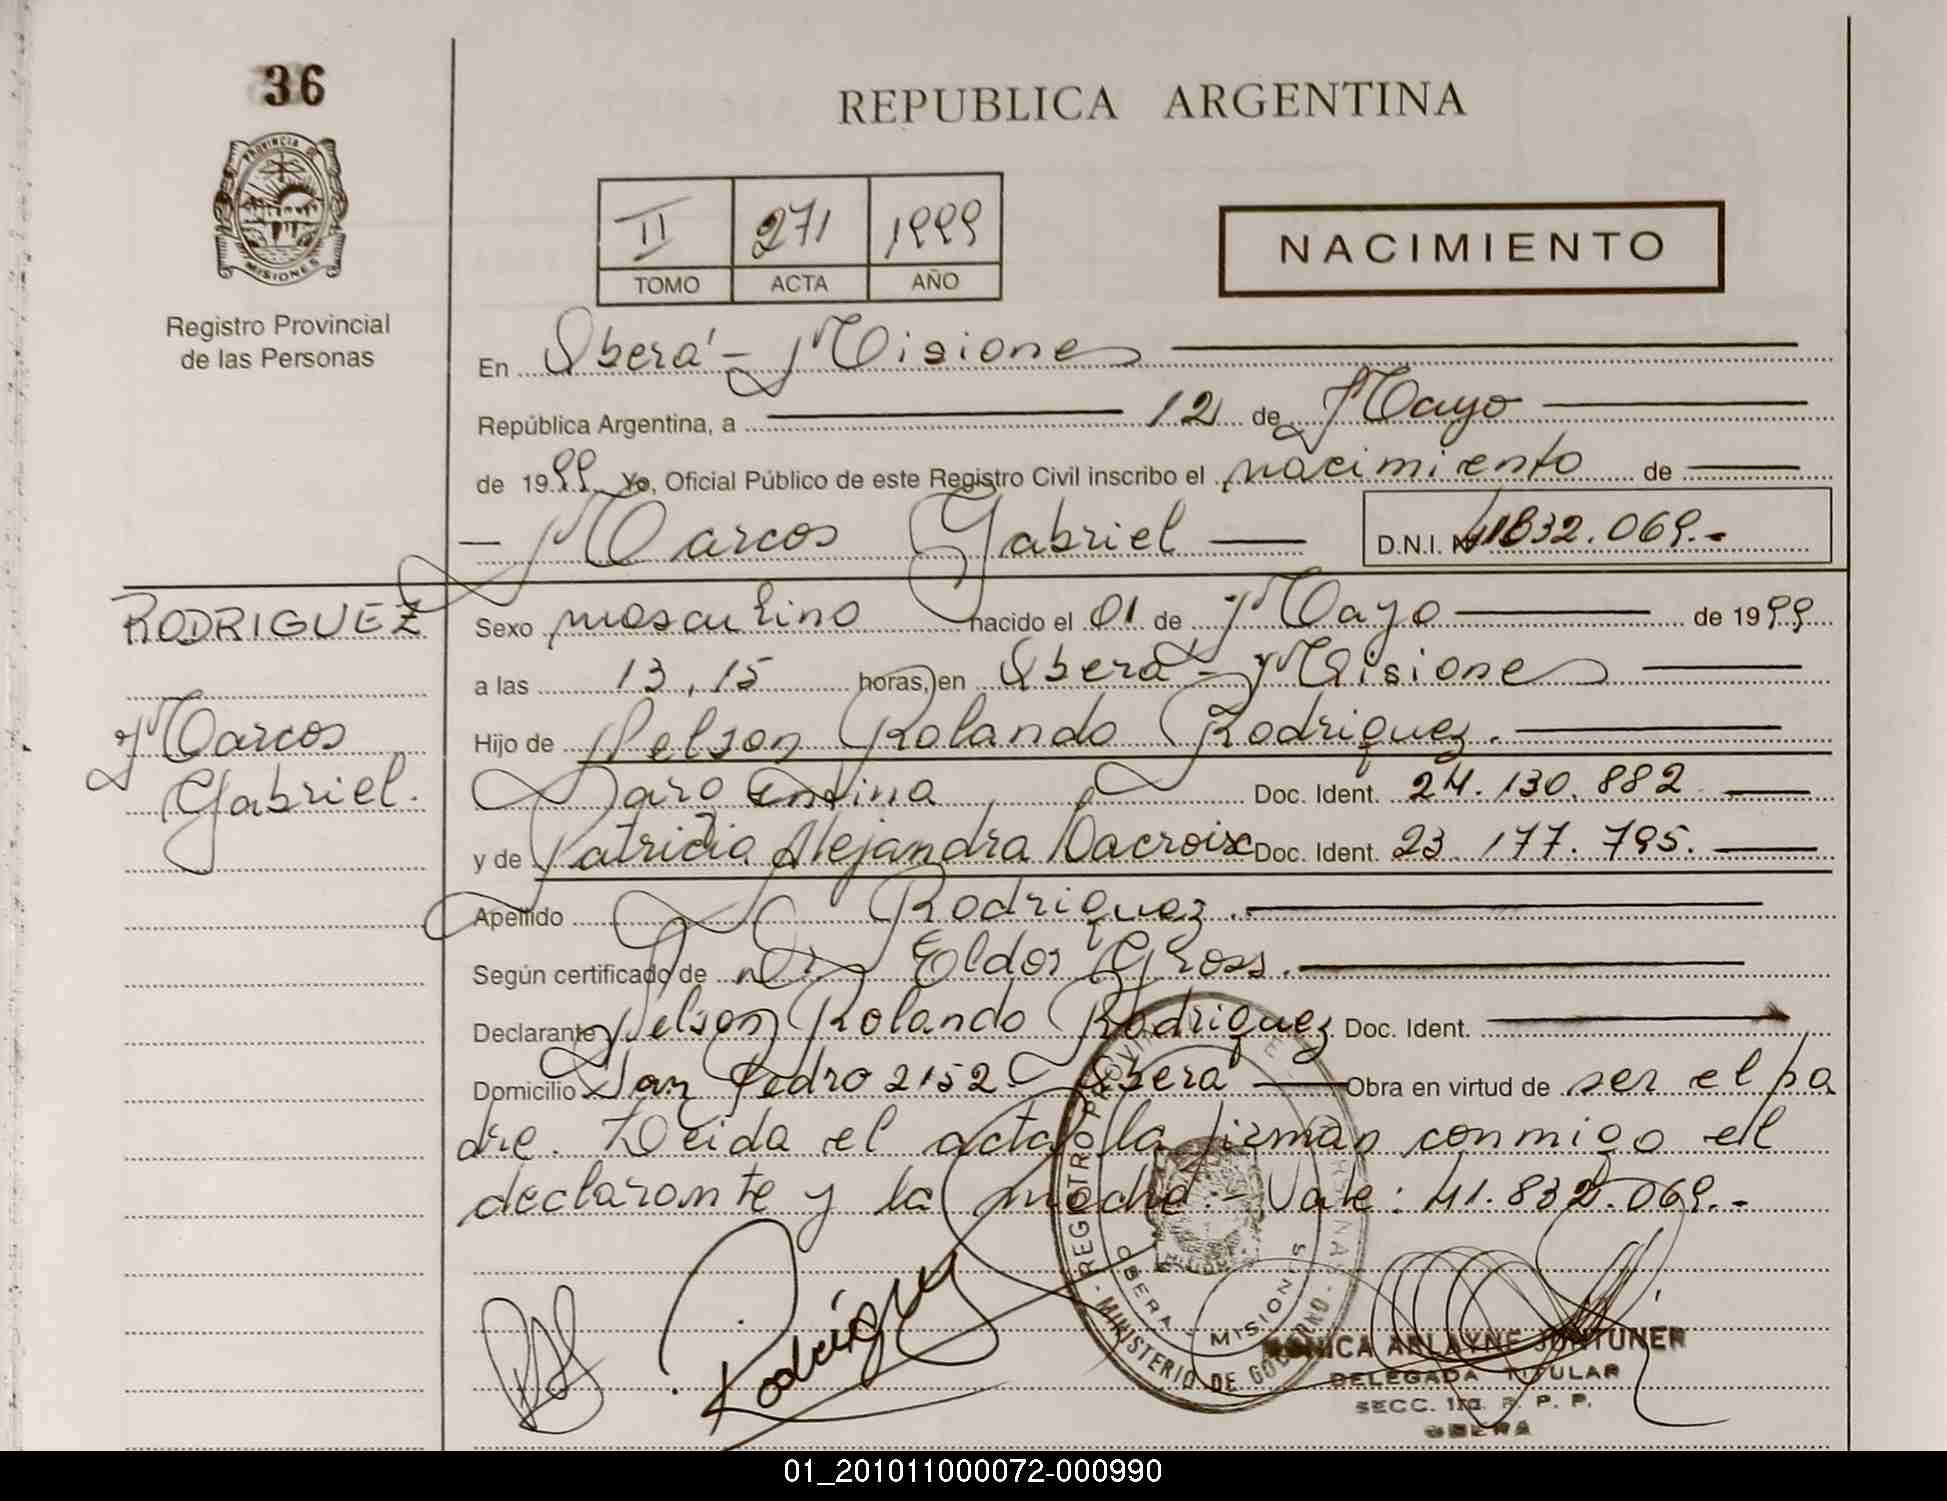 36
REPUBLICA ARGENTINA
PROVINCIA DE
MISIONES
Registro Provincial
de las Personas
II 271 1999
TOMO ACTA AÑO
NACIMIENTO
En Oberá - Misiones
República Argentina, a 12 de Mayo
de 1999 Yo, Oficial Público de este Registro Civil inscribo el nacimiento de
Marcos Gabriel D.N.I. Nº 41832.069.-
RODRIGUEZ
Marcos
Gabriel.
Sexo masculino nacido el 01 de Mayo de 1999
a las 13,15 horas, en Oberá - Misiones
Hijo de Nelson Rolando Rodriguez.
Argentina Doc. Ident. 24.130.882
y de Patricia Alejandra Dacroix Doc. Ident. 23.177.795.
Apellido Rodriguez.
Según certificado de Dr Eldor Gross.
Declarante Nelson Rolando Rodriguez Doc. Ident.
Domicilio San Pedro 2152 - Oberá Obra en virtud de ser el pa
dre. Leida el acta la firman conmigo el
declarante y la madre. - Vale: 41.832.069.-
Rodríguez
REGISTRO PROVINCIAL
OBERA MISIONES
MINISTERIO DE GOBIERNO
MONICA ARLAYNE
DELEGADA TITULAR
SECC. 1ra. R. P. P.
OBERA
01_201011000072-000990